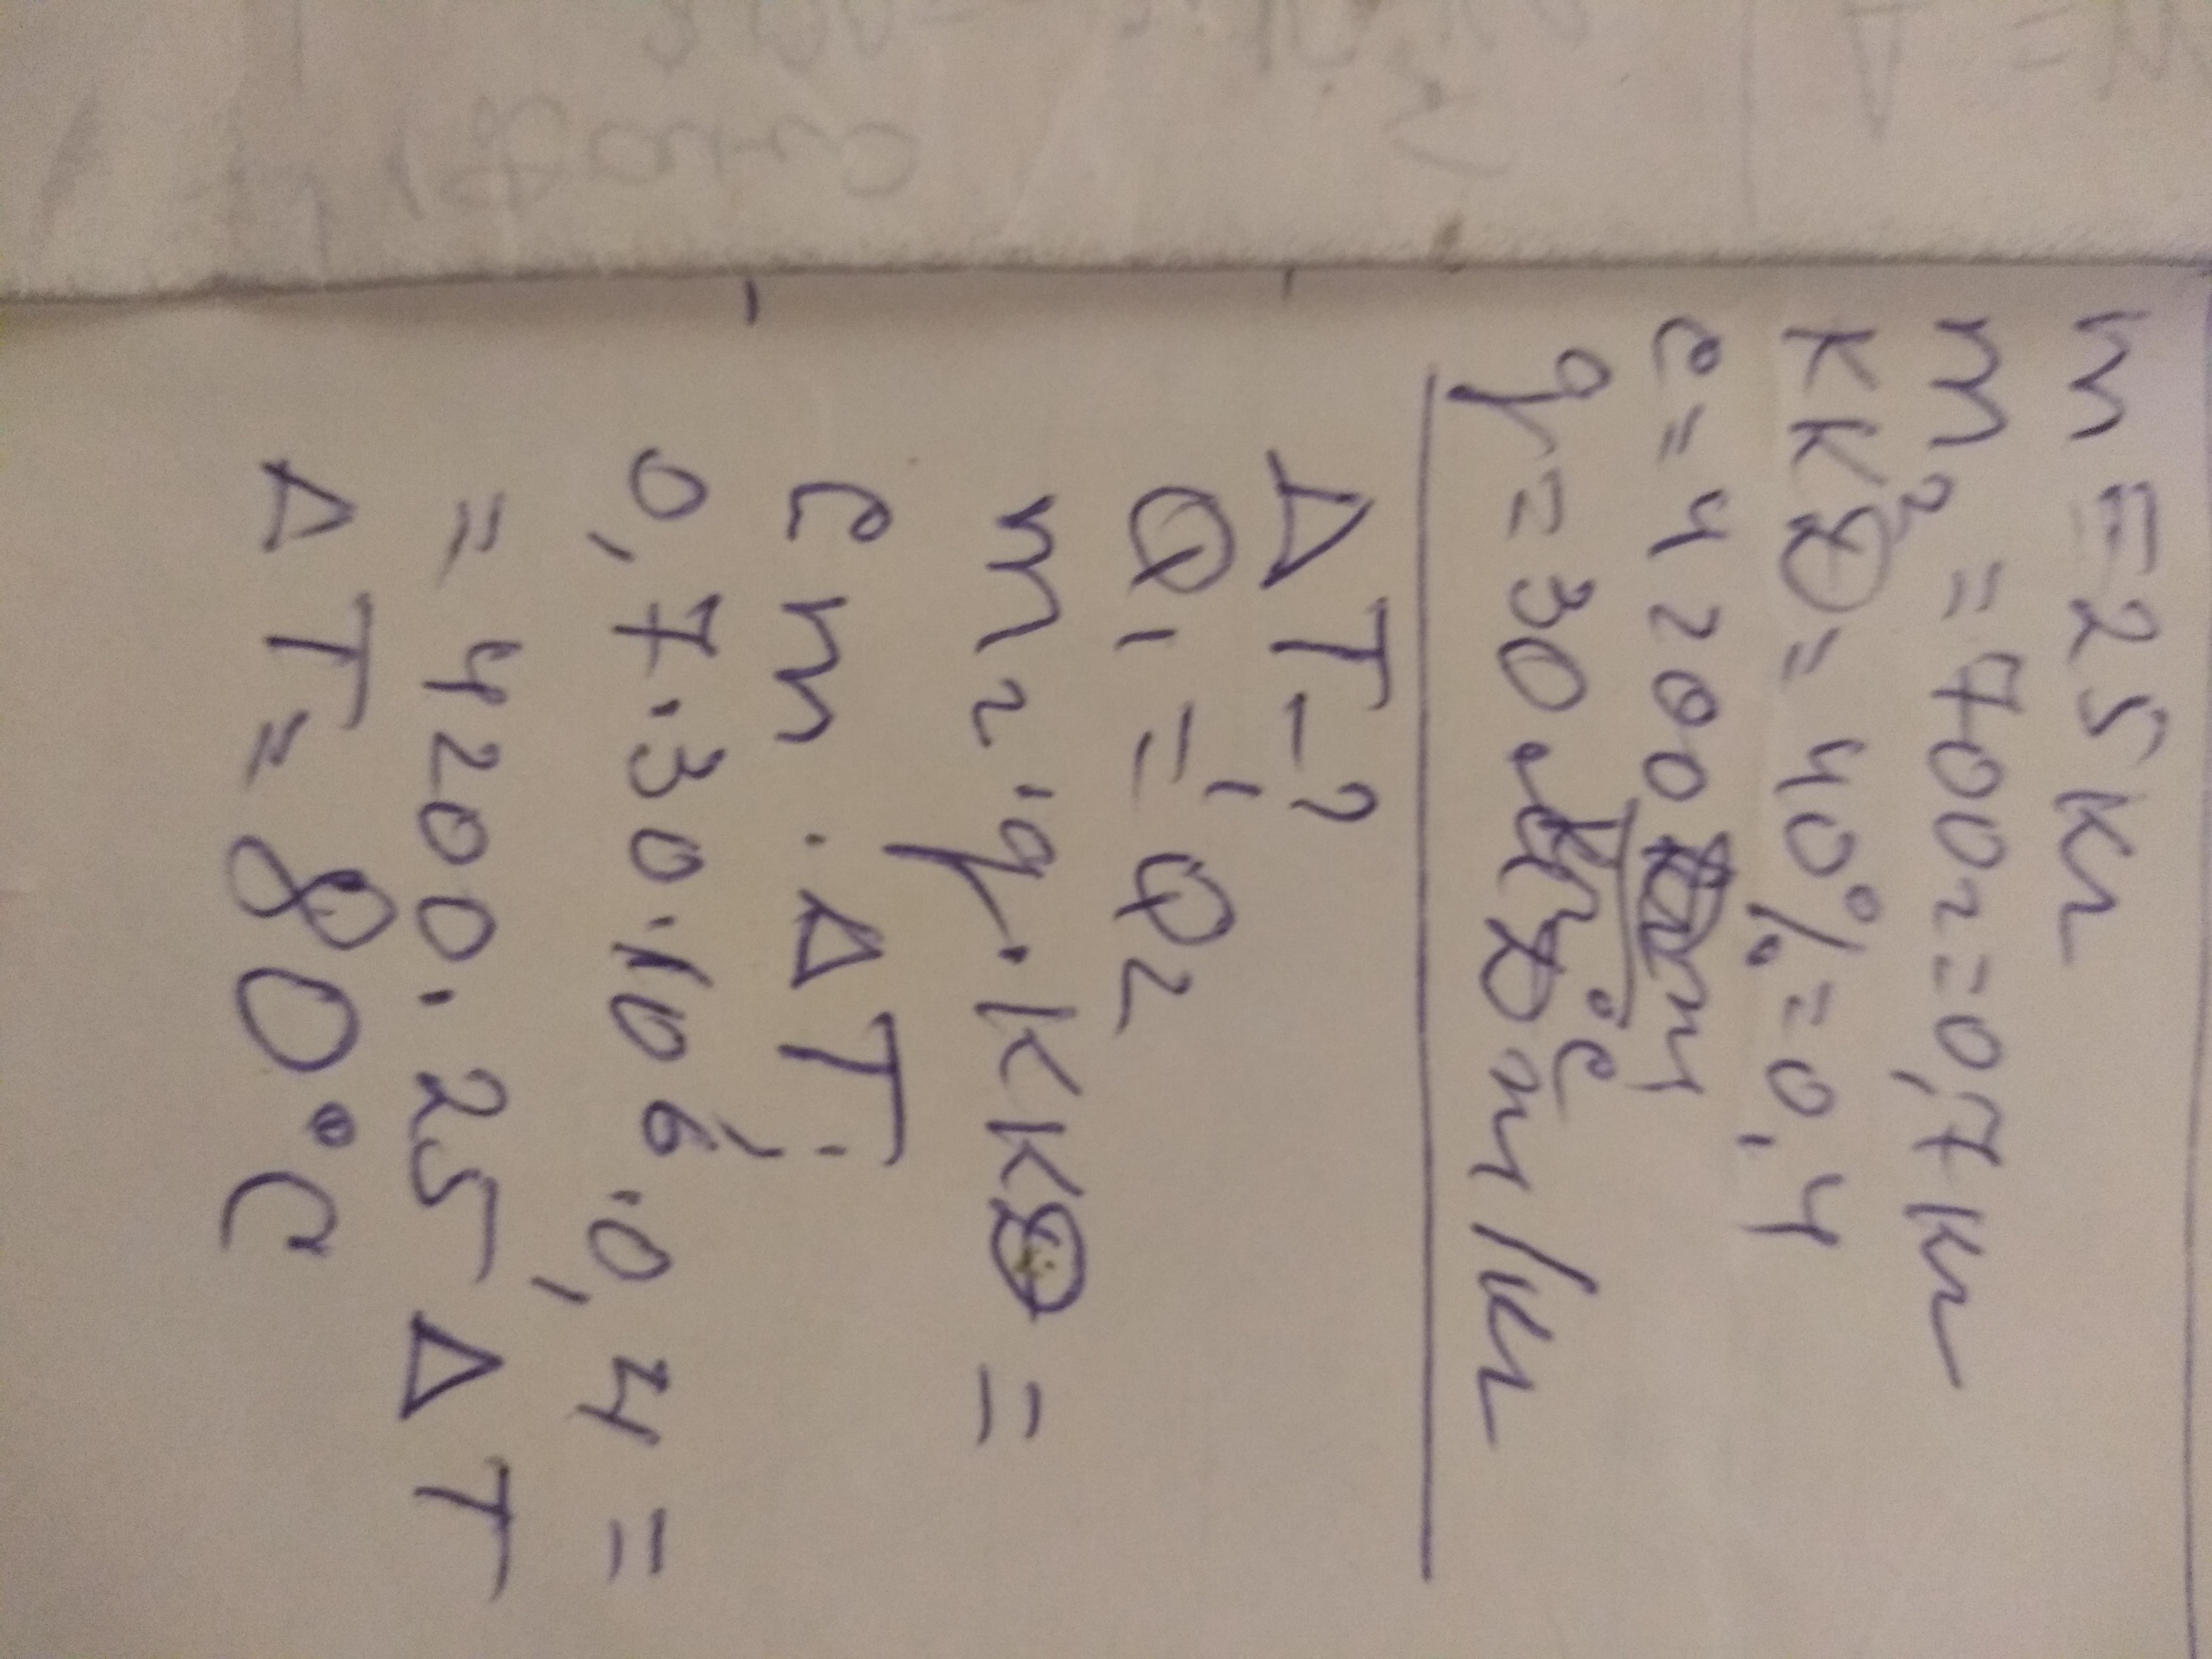 m = 25 кг
m₂ = 700г = 0,7 кг
ККД = 40% = 0,4
c = 4200
°C
q = 30 /кг
ΔT - ?
Q₁ = Q₂
m₂ · q · ККД =
cm · ΔT;
0,7 · 30 · 10⁶ · 0,4 =
= 4200 · 25 ΔT
ΔT = 80 °C